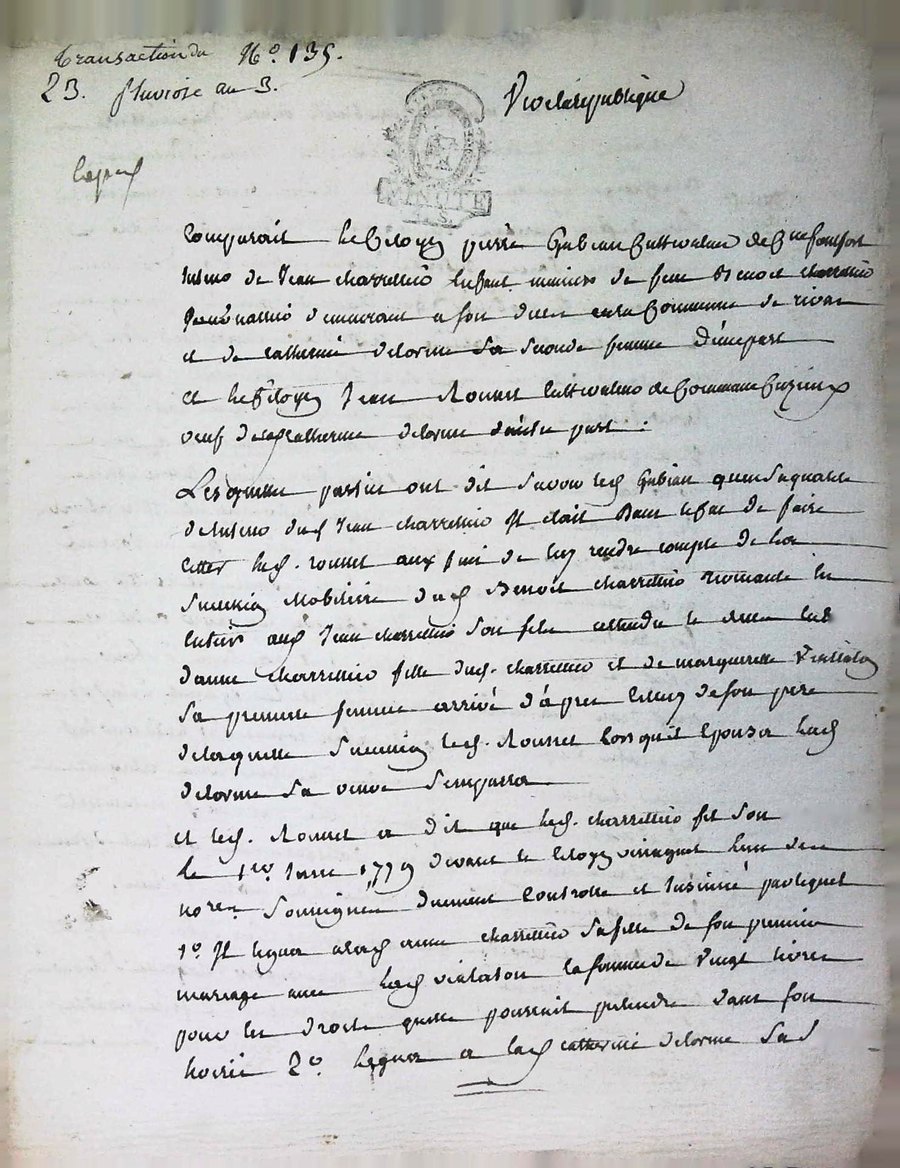 Transaction du N.º 135.
23. pluviose an 3.
Vive la republique
MINUTE
S.
Comparait le Citoyen pierre Gubian Cultivateur de
de Jean charretier Enfant mineur de feu Benoit charretier
demeurant a son deces en la Commune de rive
et de catherine delorme Sa seconde femme D'une part
et le Citoyen Jean Rounet Cultivateur de Commune
veuf de catherine delorme d'autre part.
Lesquelles parties ont dit savoir led. Gubian qu'en sa qualité
dud. Jean charretier Il etait Dans le cas de faire
citer led. rounet aux fins de luy rendre compte de la
Succession Mobiliere dud. Benoit charretier
aud. Jean charretier son fils le
d'anne charretier fille dud. charretier et de marguerite Viallaton
Sa premiere femme arrivé d'après celuy de son pere
de laquelle Succession led. Rounet lorsquil Epousa lad.
delorme sa veuve S'empara
et led. Rounet a dit que led. charretier fit son
le 1er 1779 devant le Citoyen l'un des
nores. Soussignés duement Controllé et Insinué par lequel
1º. Il legua a lad. anne charretier Sa fille de son premier
mariage avec lad. vialaton la somme de Vingt livres
pour les droits quelle pourrait pretendre dans son
hoirie 2º. legua a lad. catherine delorme Sa